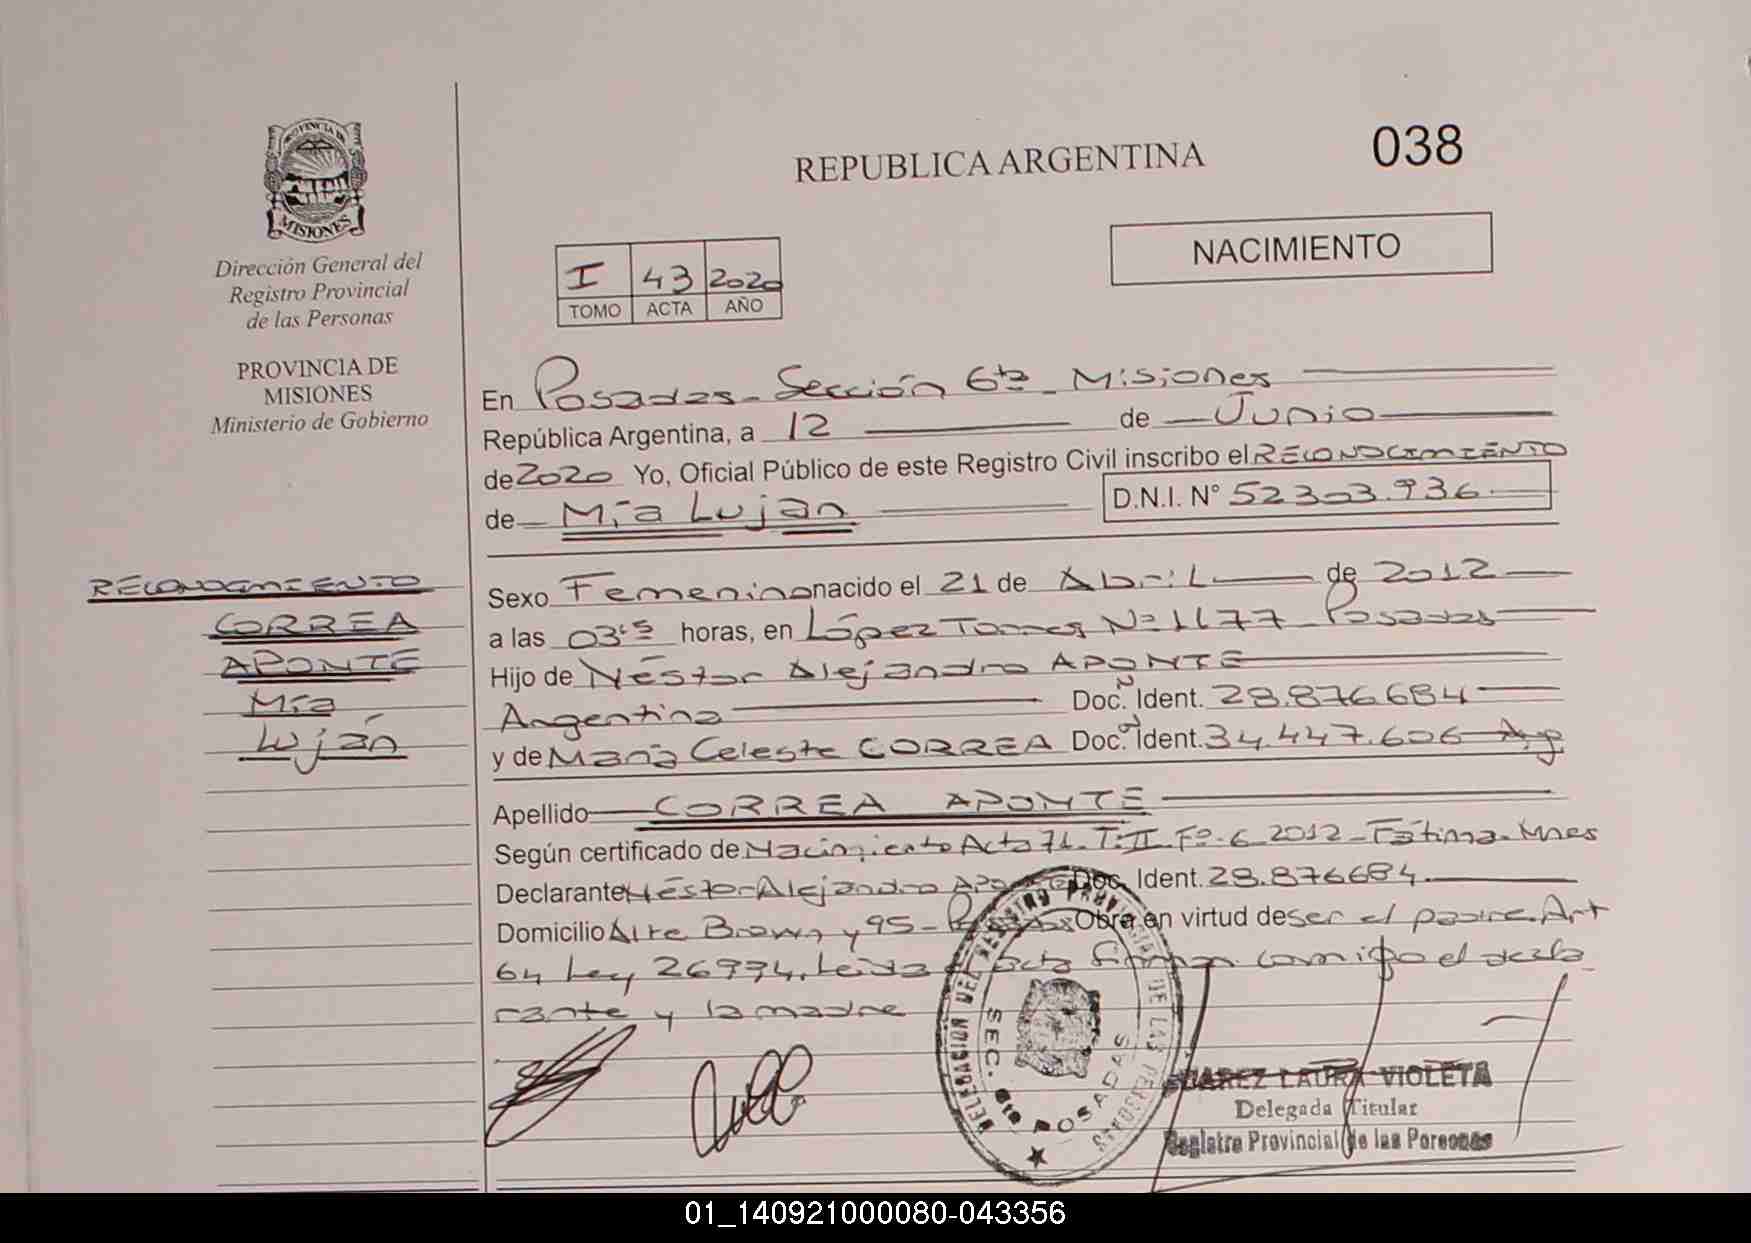 038
REPUBLICA ARGENTINA
NACIMIENTO
PROVINCIA DE
MISIONES
Dirección General del
Registro Provincial
de las Personas
PROVINCIA DE
MISIONES
Ministerio de Gobierno
I 43 2020
TOMO ACTA AÑO
En Posadas - Sección 6ta - Misiones
República Argentina, a 12 de Junio
de 2020 Yo, Oficial Público de este Registro Civil inscribo el RECONOCIMIENTO
de Mía Luján D.N.I. N° 52303.936
RECONOCIMIENTO
CORREA
APONTE
Mía
Luján
Sexo Femenino nacido el 21 de Abril de 2012
a las 03:15 horas, en López Torres Nº 1177 - Posadas
Hijo de Néstor Alejandro APONTE
Argentina Doc. Ident. 28.876.684
y de María Celeste CORREA Doc. Ident. 34.447.606 Arg
Apellido CORREA APONTE
Según certificado de Nacimiento Acta 71. T: II. Fº. 6. 2012 - Fátima - Mnes
Declarante Néstor Alejandro Doc. Ident. 28.876684
Domicilio Alte Brown y 95 - Obra en virtud de ser el padre. Art
64 Ley 26994. Leída Acta firman conmigo el decla
rante y la madre
DELEGACION DEL REGISTRO PROVINCIAL DE LAS PERSONAS
SEC. 6ta POSADAS
SUAREZ LAURA VIOLETA
Delegada Titular
Registro Provincial de las Personas
01_140921000080-043356